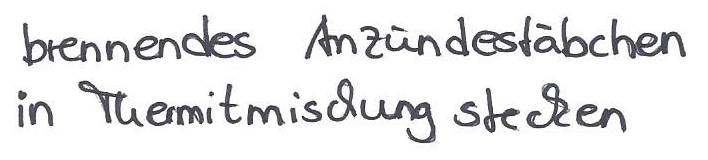 brennendes Anzündestäbchen
in Thermitmischung stecken